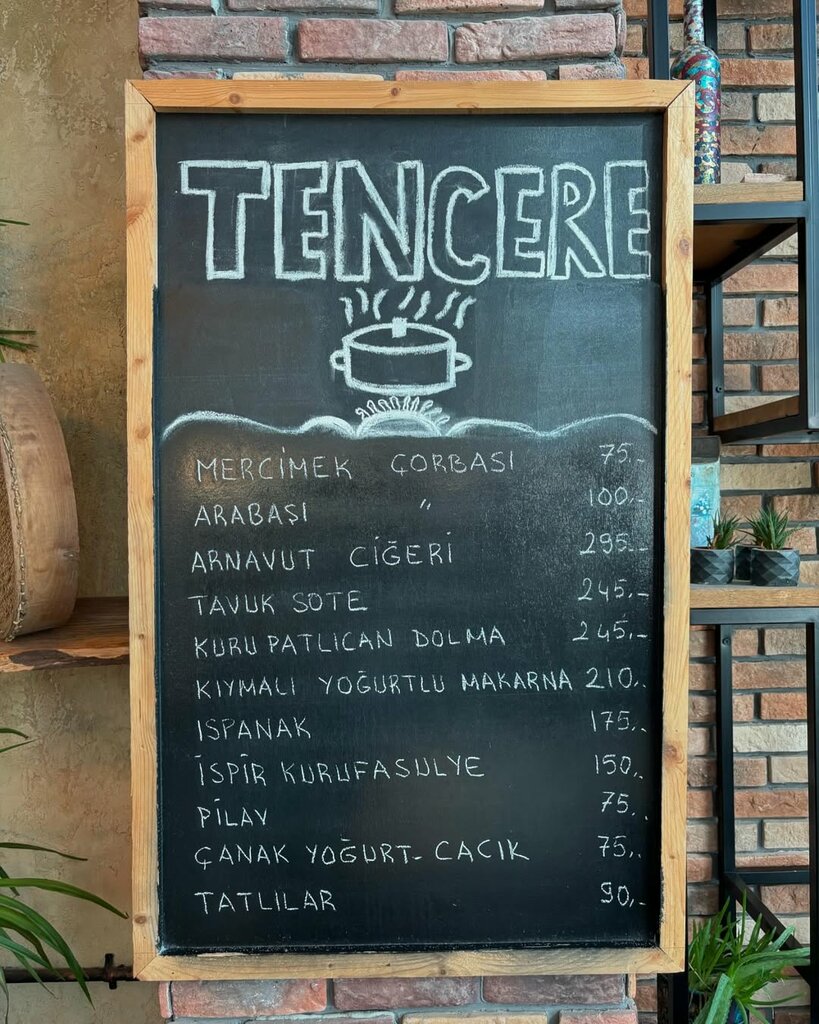 TENCERE
MERCİMEK ÇORBASI 75.-
ARABAŞI " 100.-
ARNAVUT CİĞERİ 295.-
TAVUK SOTE 245.-
KURU PATLICAN DOLMA 245.-
KIYMALI YOĞURTLU MAKARNA 210..
ISPANAK 175..
İSPİR KURUFASULYE 150..
PİLAV 75..
ÇANAK YOĞURT- CACIK 75..
TATLILAR 90.-